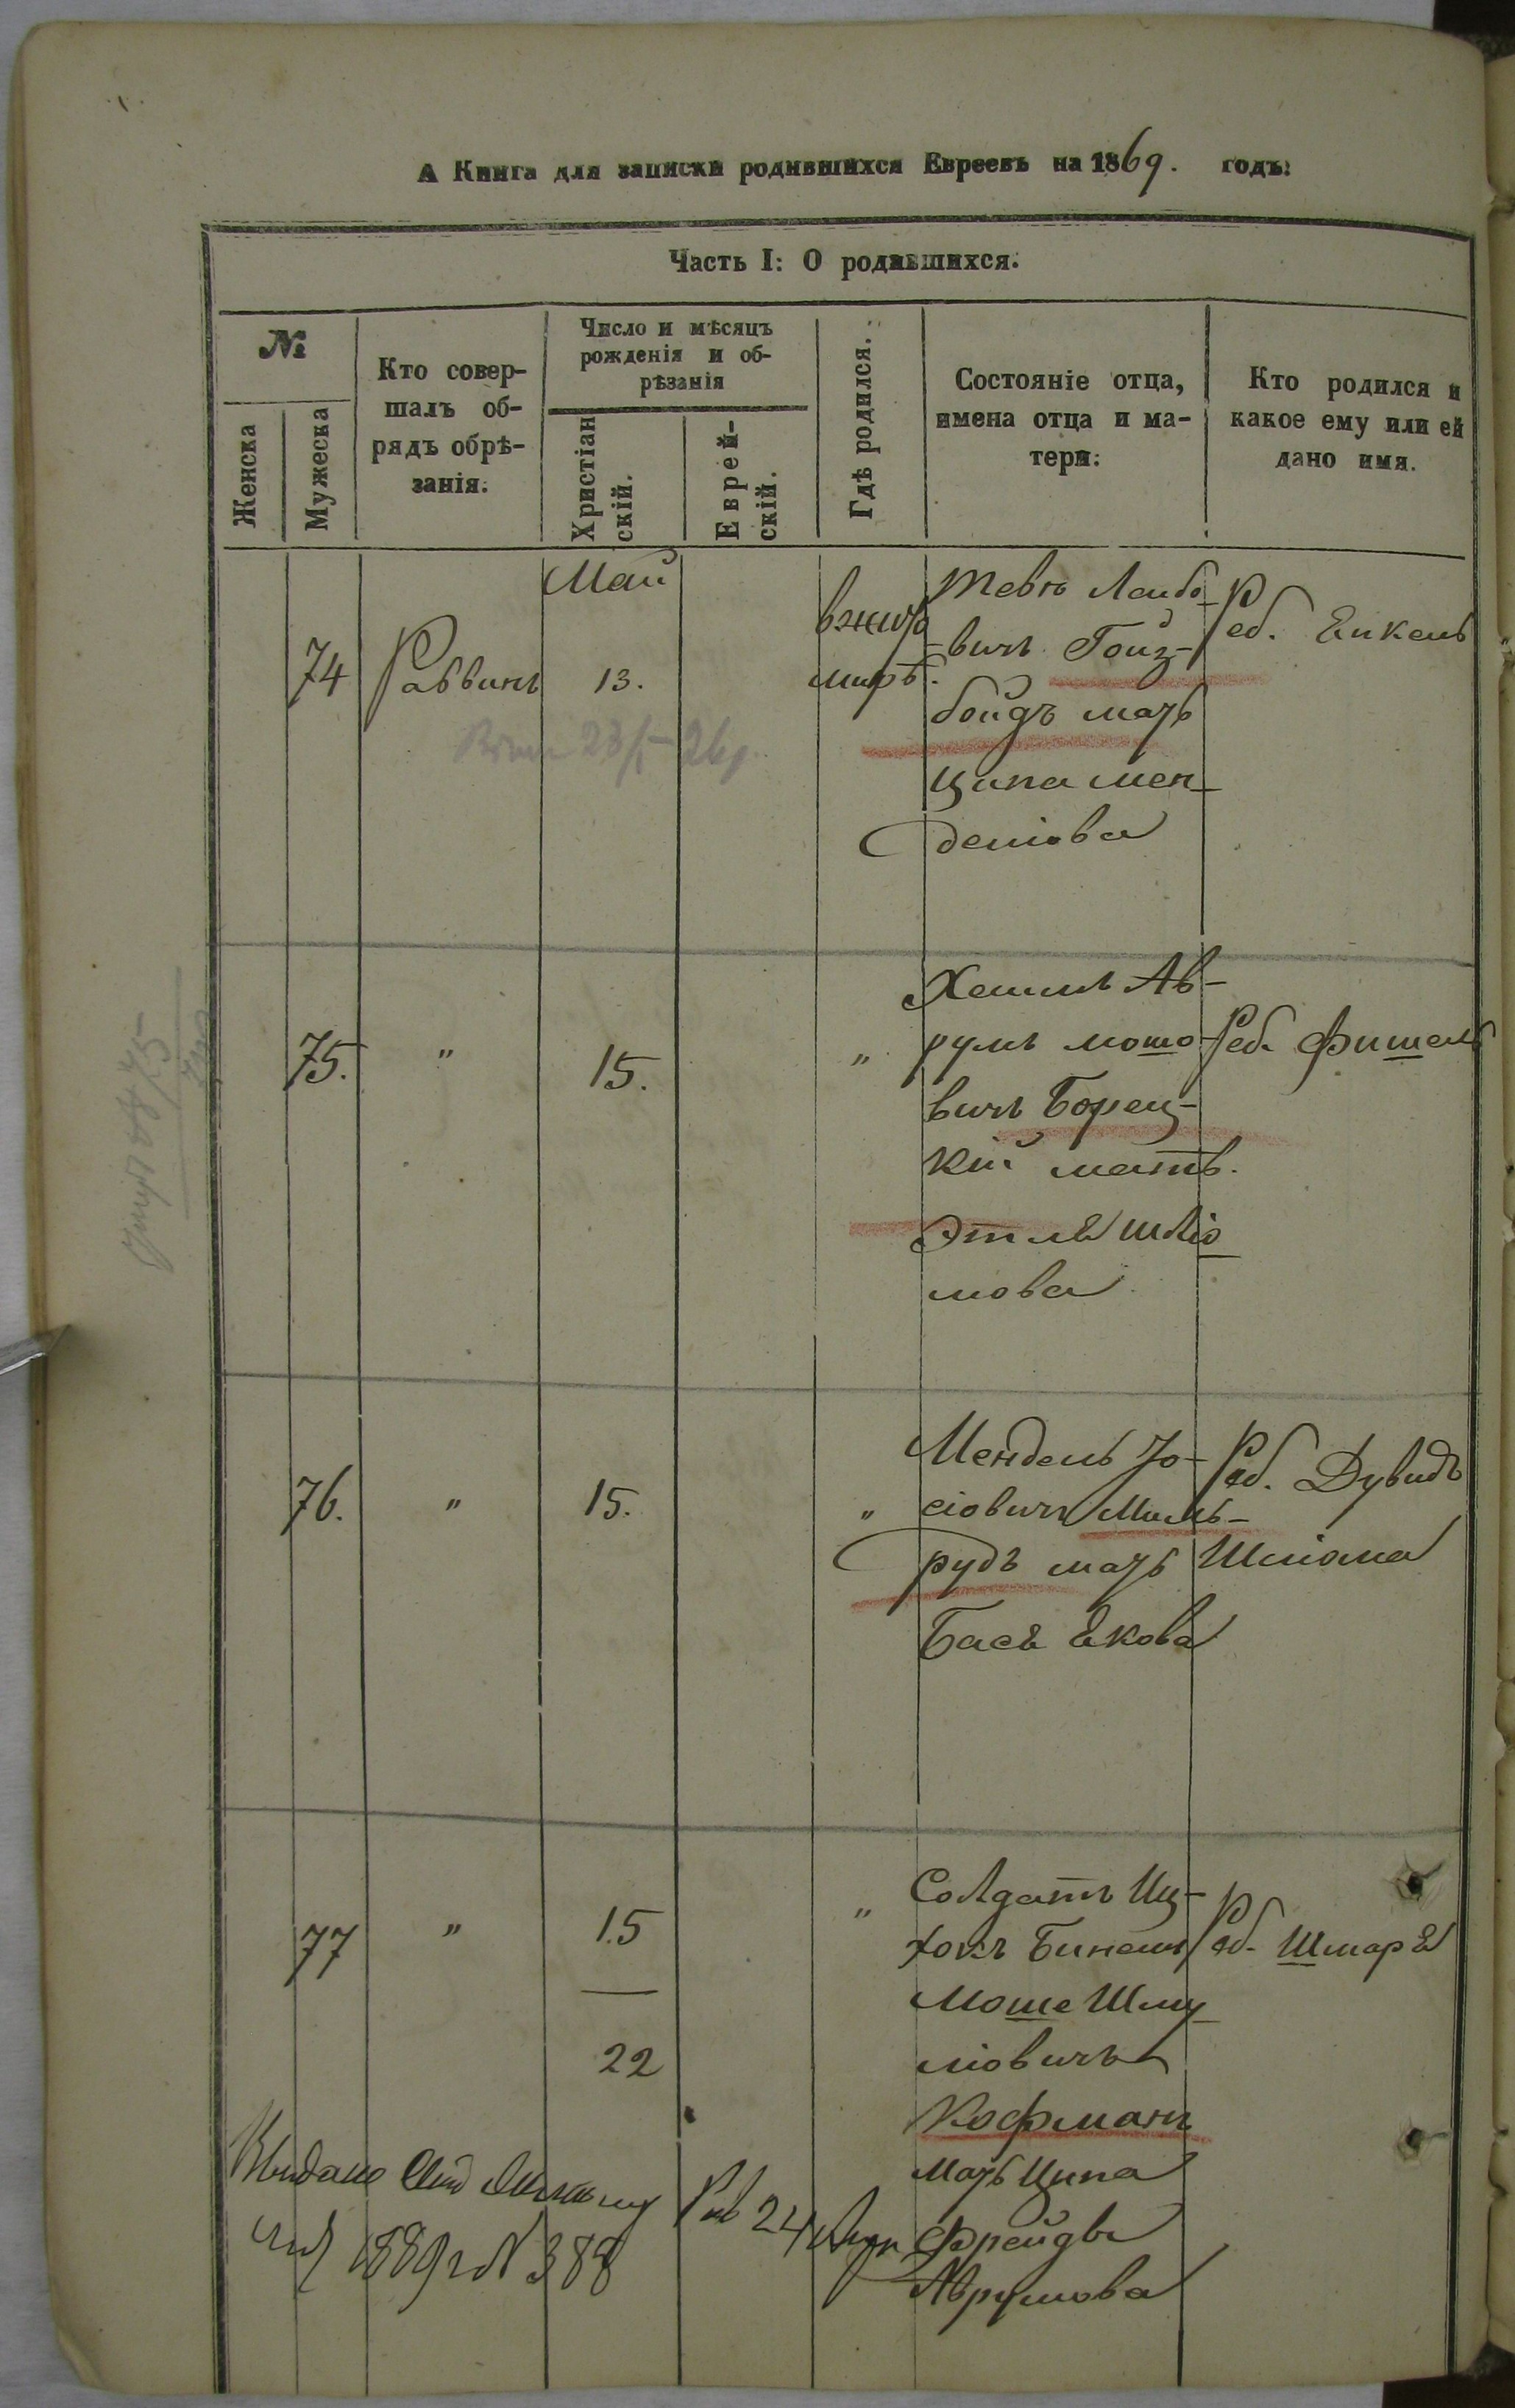 А Книга для записки родившихся Евреевъ на 1869. годъ:
Часть I: О родившихся.
№
Женска
Мужеска
Кто совер-
шалъ об-
рядъ обрѣ-
занія.
Число и мѣсяцъ
рожденія и об-
рѣзанія
Христіан
скій.
Еврей-
скій.
Гдѣ родился.
Состояніе отца,
имена отца и ма-
тери:
Кто родился и
какое ему или ей
дано имя.
Май
74
Раввинъ
13.
вжито
мирѣ.
Тевъ Лейбо-
вичъ Гойз-
бойдъ мать
Ципа Мен-
деліова
Реб. Енкель
75.
"
15.
"
Хаимъ Ав-
румъ мошо-
вичъ Борец-
кій мать.
Этлѣ Шлio
мова
Реб. Фишель
76.
"
15.
"
Мендель Іо-
сіовичъ Миль-
рудъ мать
Бася Екова
Реб. Дувидъ
Шліома
77
"
15
22
"
Солдатъ Иц-
хокъ Бинемъ
Моше Шму
ліовичъ
Кофманъ
мать Ципа
Фрейда
Аврумова
Реб. Шмаря
Выдано
24
1889 г N 388